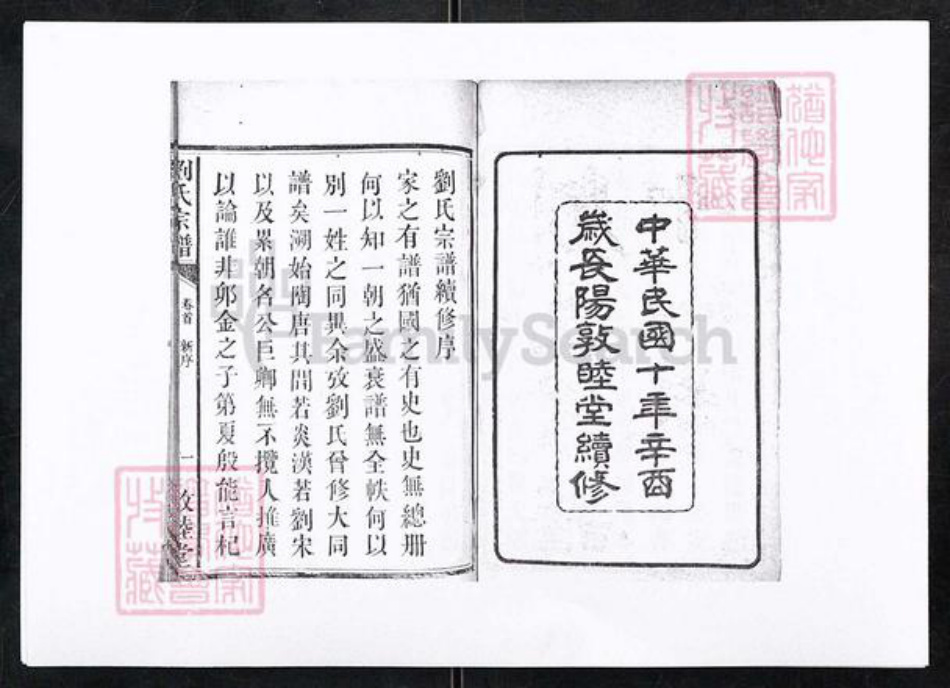 中華民國十年辛酉
歲長陽敦睦堂續修
劉氏宗譜續修序
家之有譜猶國之有史也史無總冊
何以知一朝之盛衰譜無全帙何以
別一姓之同異余攷劉氏曾修大同
譜矣溯始陶唐其間若炎漢若劉宋
以及累朝各公巨卿無不攬人推廣
以論誰非卯金之子第夏殷能言杞
劉氏宗譜
卷首 新序
一
敦睦堂
FamilySearch